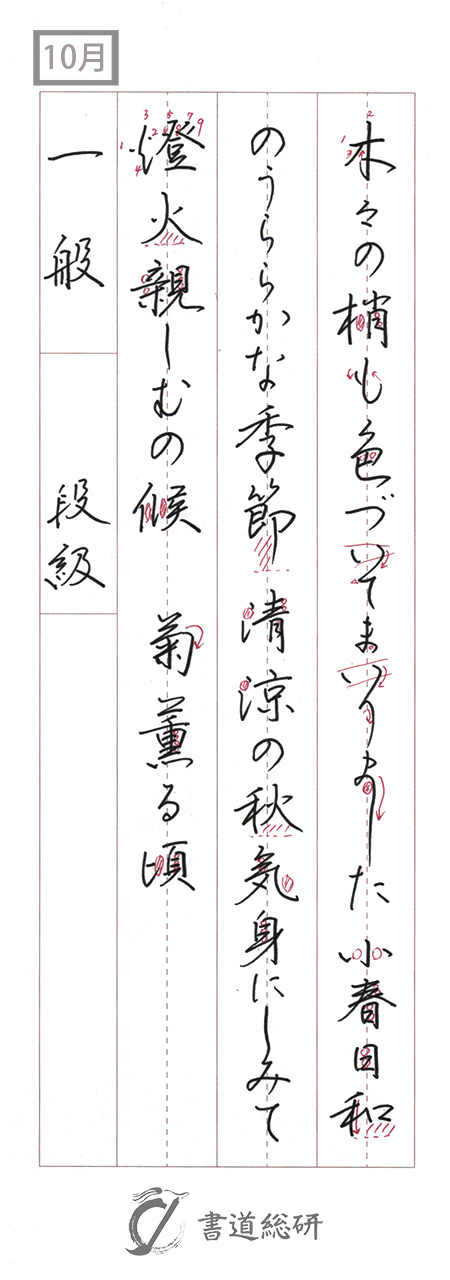 10月
木々の梢も色づいてまいりました 小春日和
のうららかな季節 清涼の秋気身にしみて
燈火親しむの候 菊薫る頃
一般 段級
書道総研